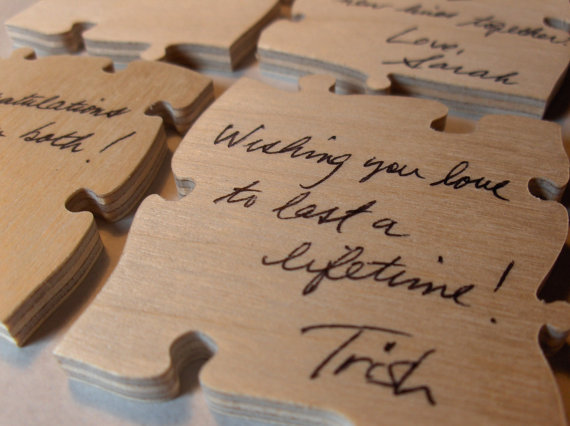 together!
Love,
Sarah
both!
Wishing you love
to last a
lifetime!
Trish